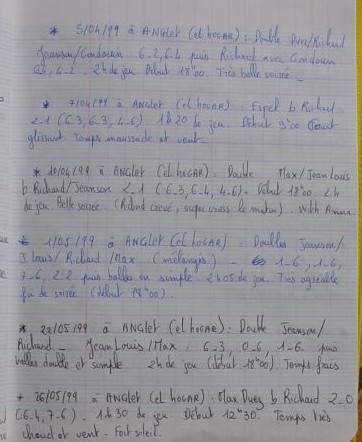 * 5/04/99 à ANGLET (el HOGAR) : Double /Richard
Jeanson/ 6-2, 6-4 puis Richard avec
6-2. 2h de jeu. Début 18h00. Très belle soirée
* 7/04/99 à ANGLET (el HOGAR) : Espel b. Richard
2-1 (6-3, 6-3, 4-6). 1h20 de jeu. Début 3h00
glissant. Temps maussade et vent.
* 10/04/99 à ANGLET (el HOGAR) : Double Max/Jean Louis
b Richard/Jeanson 2-1 (6-3, 6-4, 4-6). Début 18h00. 2h
de jeu. Belle soirée (Richard crevé, super cross le matin). With
* 1/05/99 à ANGLET (el HOGAR) : Doubles Jeanson/
J. Louis/Richard/Max (mélangés) - 1-6, 1-6,
7-6, 2-2 puis balles en simple. 2h05 de jeu. Très agréable
fin de soirée (début 18h00).
* 22/05/99 à ANGLET (el HOGAR) : Double Jeanson/
Richard - Jean Louis/Max : 6-3, 0-6, 1-6 puis
balles double et simple 2h de jeu (début 18h00). Temps frais
* 26/05/99 à ANGLET (el HOGAR) : Max b Richard 2-0
(6-4, 7-6). 1h30 de jeu Début 12h30. Temps très
chaud et vent - Fort soleil.